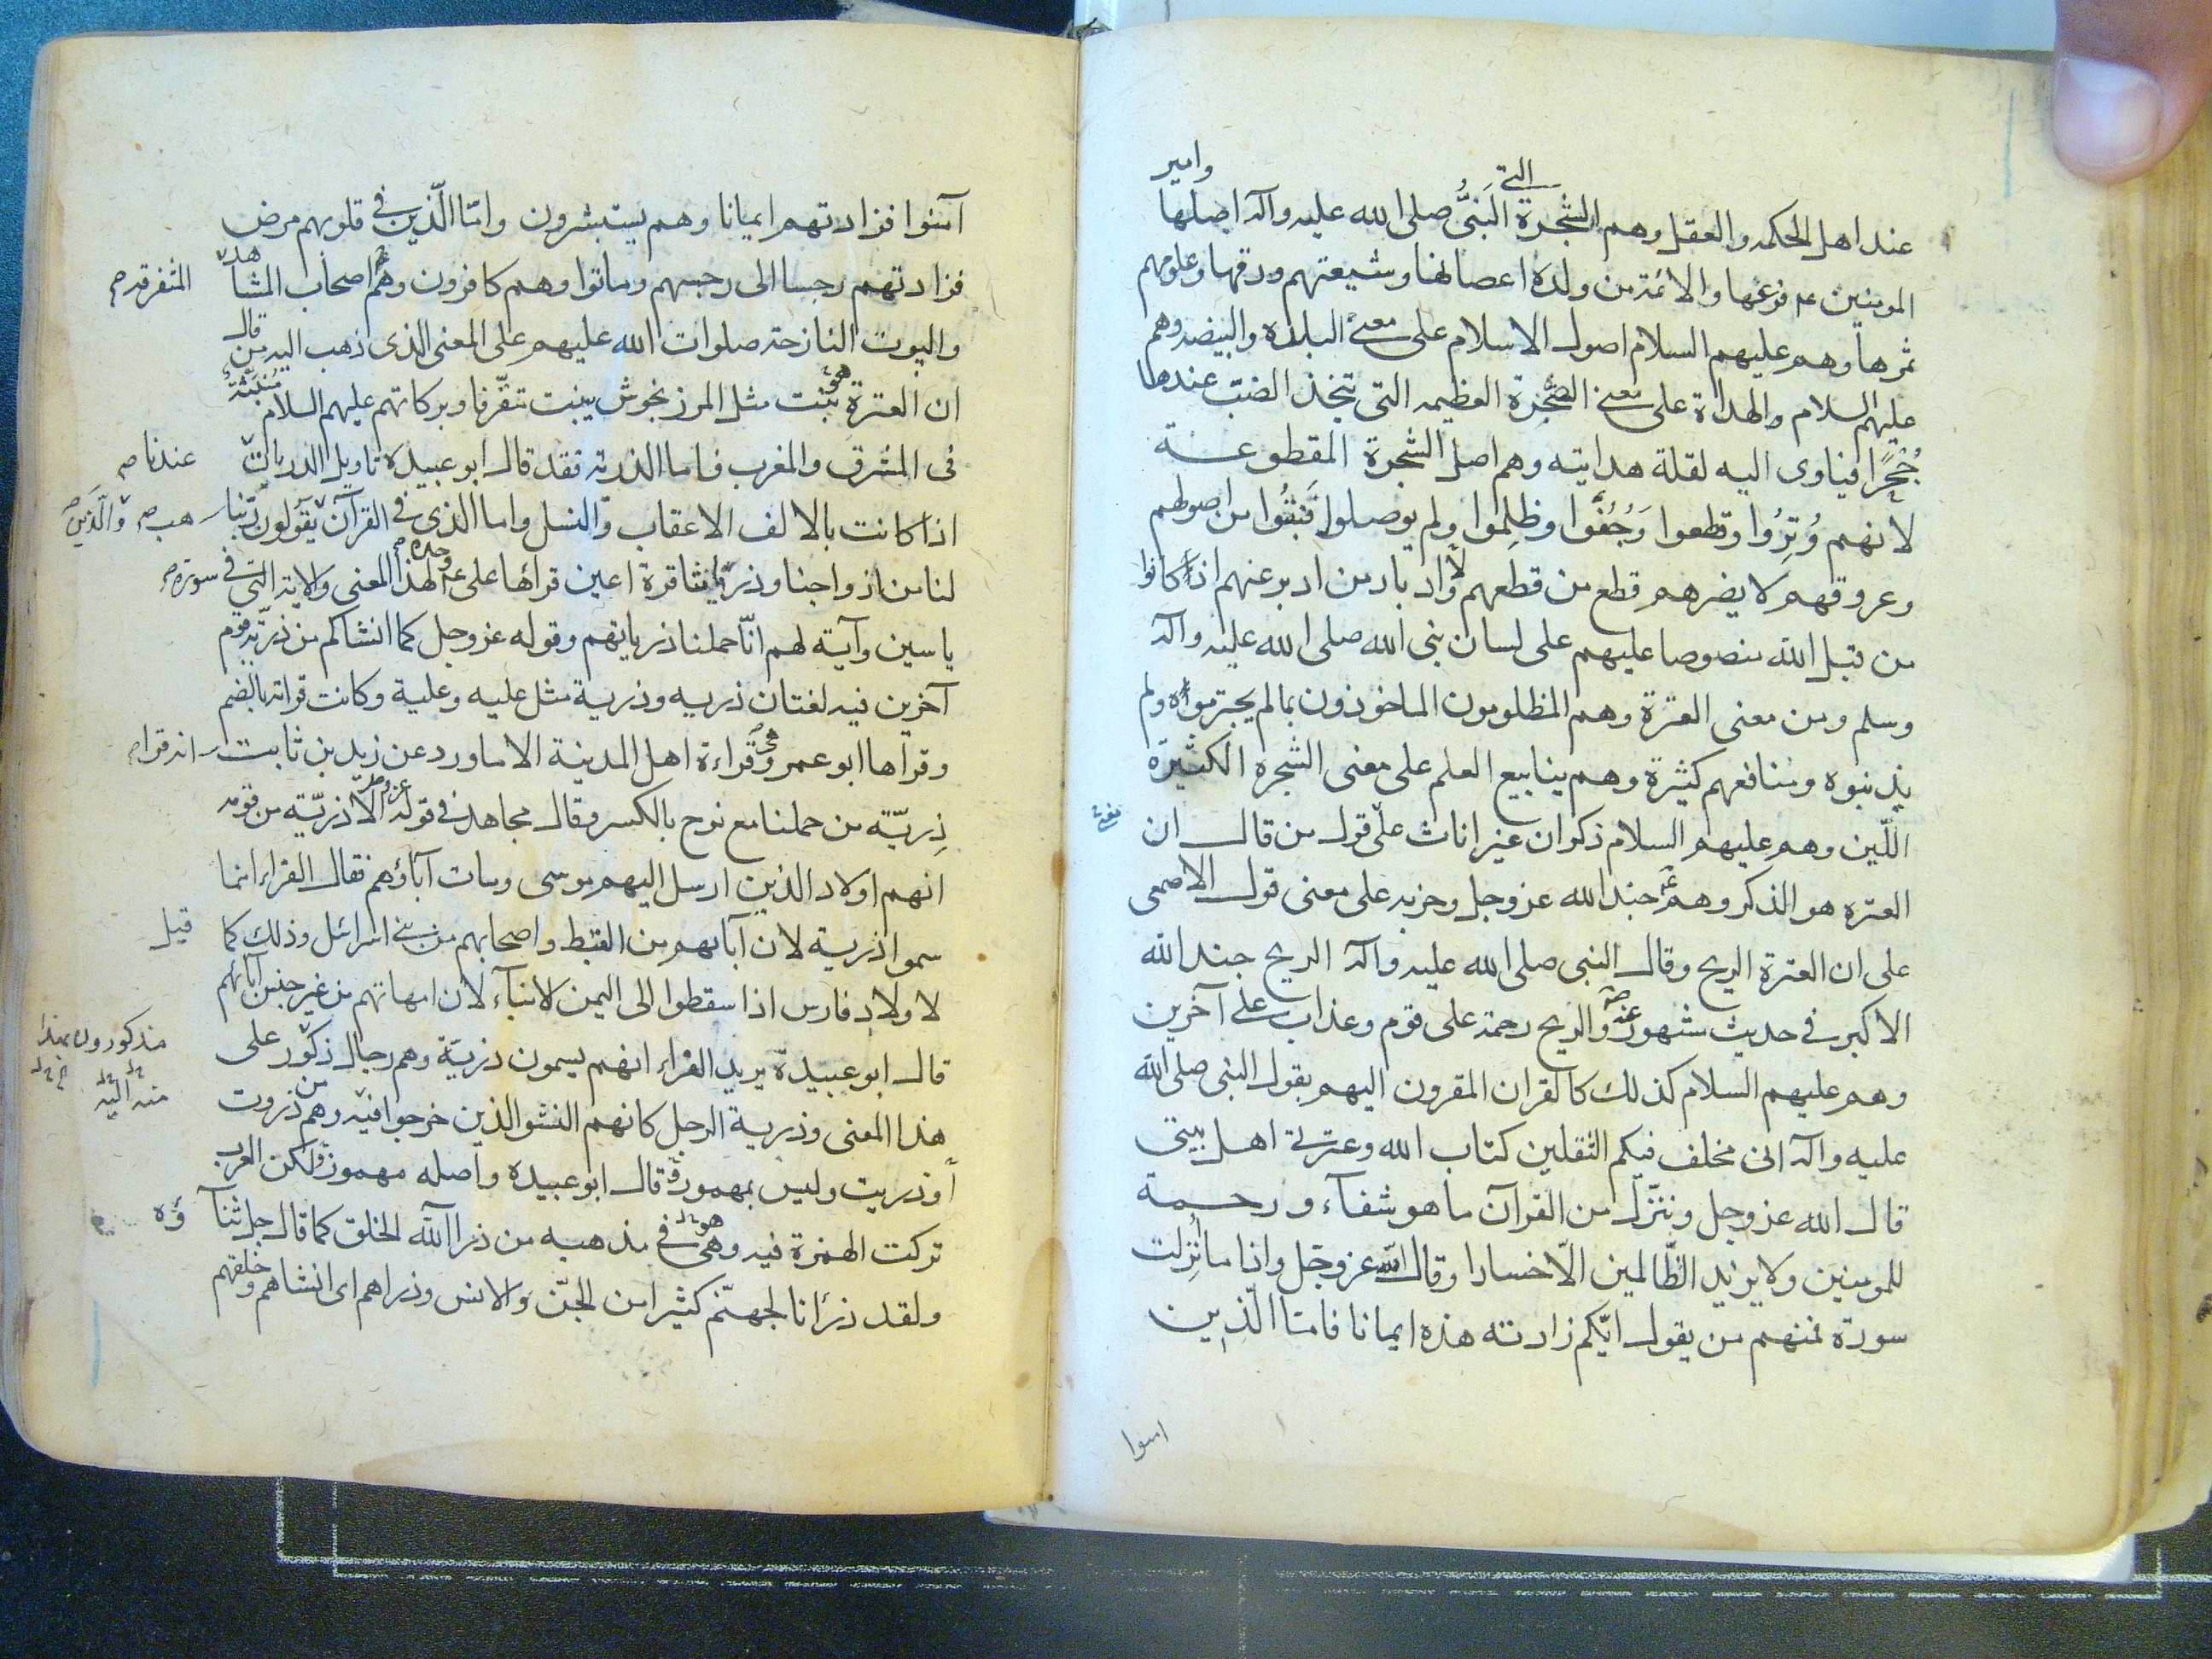 وامير
التى
عند اهل الحكمه والعقل وهم الشجرة النبىُّ صلى الله عليه وآله اصلها
المومنين ع فرعها والائمة من ولده اعصانها وشيعتهم ورقها وعلومهم
ثمرها وهم عليهم السلام اصول الاسلام على معنى البلدة والبيضه وهم
عليهم السلام والهداة على معنى الصخرة العظيمه التى تتخذ الضبّ عندها
جُحْرًا فياوى اليه لقلة هدايته وهم اصل الشجرة المقطوعة
لانهم وُتِرُوا وقطعوا وَجُفُوا وظلِموا ولم يوصلوا فَنَبَتُوا من اصولهم
وعروقهم لا يضرهم قطع من قطعهم ولا ادبار من ادبر عنهم اذ كانوا
من قبل الله منصوصا عليهم على لسان نبى الله صلى الله عليه وآله
وسلم ومن معنى العترة وهم المظلومون الماخوذون بما لم يجترموه ولم
يذنبوه ومنافعهم كثيرة وهم ينابيع العلم على معنى الشجره الكثيرة
اللّبن وهم عليهم السلام ذكران غير اناث على قول من قال ان
العتره هو الذكر وهم جند الله عز وجل وحزبه على معنى قول الاصمعى
على ان العترة الريح وقال النبى صلى الله عليه وآله الريح جند الله
الاكبر فى حديث مشهور عنه والريح رحمة على قوم وعذاب على آخرين
وهم عليهم السلام كذلك كالقران المقرون اليهم بقول النبى صلى الله
عليه وآله انى مخلف فيكم الثقلين كتاب الله وعترتى اهل بيتى
قال الله عز وجل وننزّل من القرآن ما هو شفآء ورحمة
للمومنين ولا يزيد الظّالمين الّا خسارا وقال الله عز وجّل واذا ما أُنزِلت
سورة فمنهم من يقول ايّكم زادته هذه ايمانا فامّا الّذين
امنوا
آمنوا فزادتهم ايمانا وهم يستبشرون وامّا الّذين فى قلوبهم مرض
فزادتهم رجسا الى رجسهم وماتوا وهم كافرون وهم اصحاب المشاهد المتفرقة
والبيوت النازحة صلوات الله عليهم على المعنى الذى ذهب اليه من قال
ان العترة نبت مثل المرزنجوش ينبت متفرقا وبركاتهم عليهم السلام منبثّة
فى المشرق والمغرب فاما الذرية فقد قال ابو عبيده تاويل الذريات عندنا
اذا كانت بالالف الاعقاب والنسل واما الذى فى القرآن والّذين يقولون ربّنا هب
لنا من ازواجنا وذرياتنا قرة اعين قراها على ع وحده لهذا المعنى والآية التى فى سورة
ياسين وآية لهم انّا حملنا ذرياتهم وقوله عز وجل كما انشاكم من ذرّية قوم
آخرين فيه لغتان ذريه وذرية مثل عليه وعلية وكانت قراته بالضم
وقراها ابو عمرو وهى قراءة اهل المدينة الا ما ورد عن زيد بن ثابت انه قرا
ذِريّة من حملنا مع نوح بالكسر وقال مجاهد فى قوله عز وجل الا ذريّة من قومه
انهم اولاد الذين ارسل اليهم موسى ومات آباؤهم فقال الفراء انما
سموا ذرية لان آباهم من القبط واصحابهم من بنى اسرائل وذلك كما قيل
لاولاد فارس اذا سقطوا الى اليمن لابنآء لان امهاتهم من غير جنس آبائهم
قال ابو عبيدة يريد الفراء انهم يسمون ذريّة وهم رجال مذكورون بهذا على
هذا المعنى وذرية الرجل كانهم النشو الذين خرجوا منه وهم من ذروت
او ذريت وليس بمهموز قال ابو عبيده واصله مهموز ولكن العرب
تركت الهمزة فيه وهى فى مذهبه من ذرا الله الخلق كما قال جل ثناؤه
ولقد ذرٔانا لجهنّم كثيرا من الجنّ والانس وذراهم اى انشاهم وخلقهم